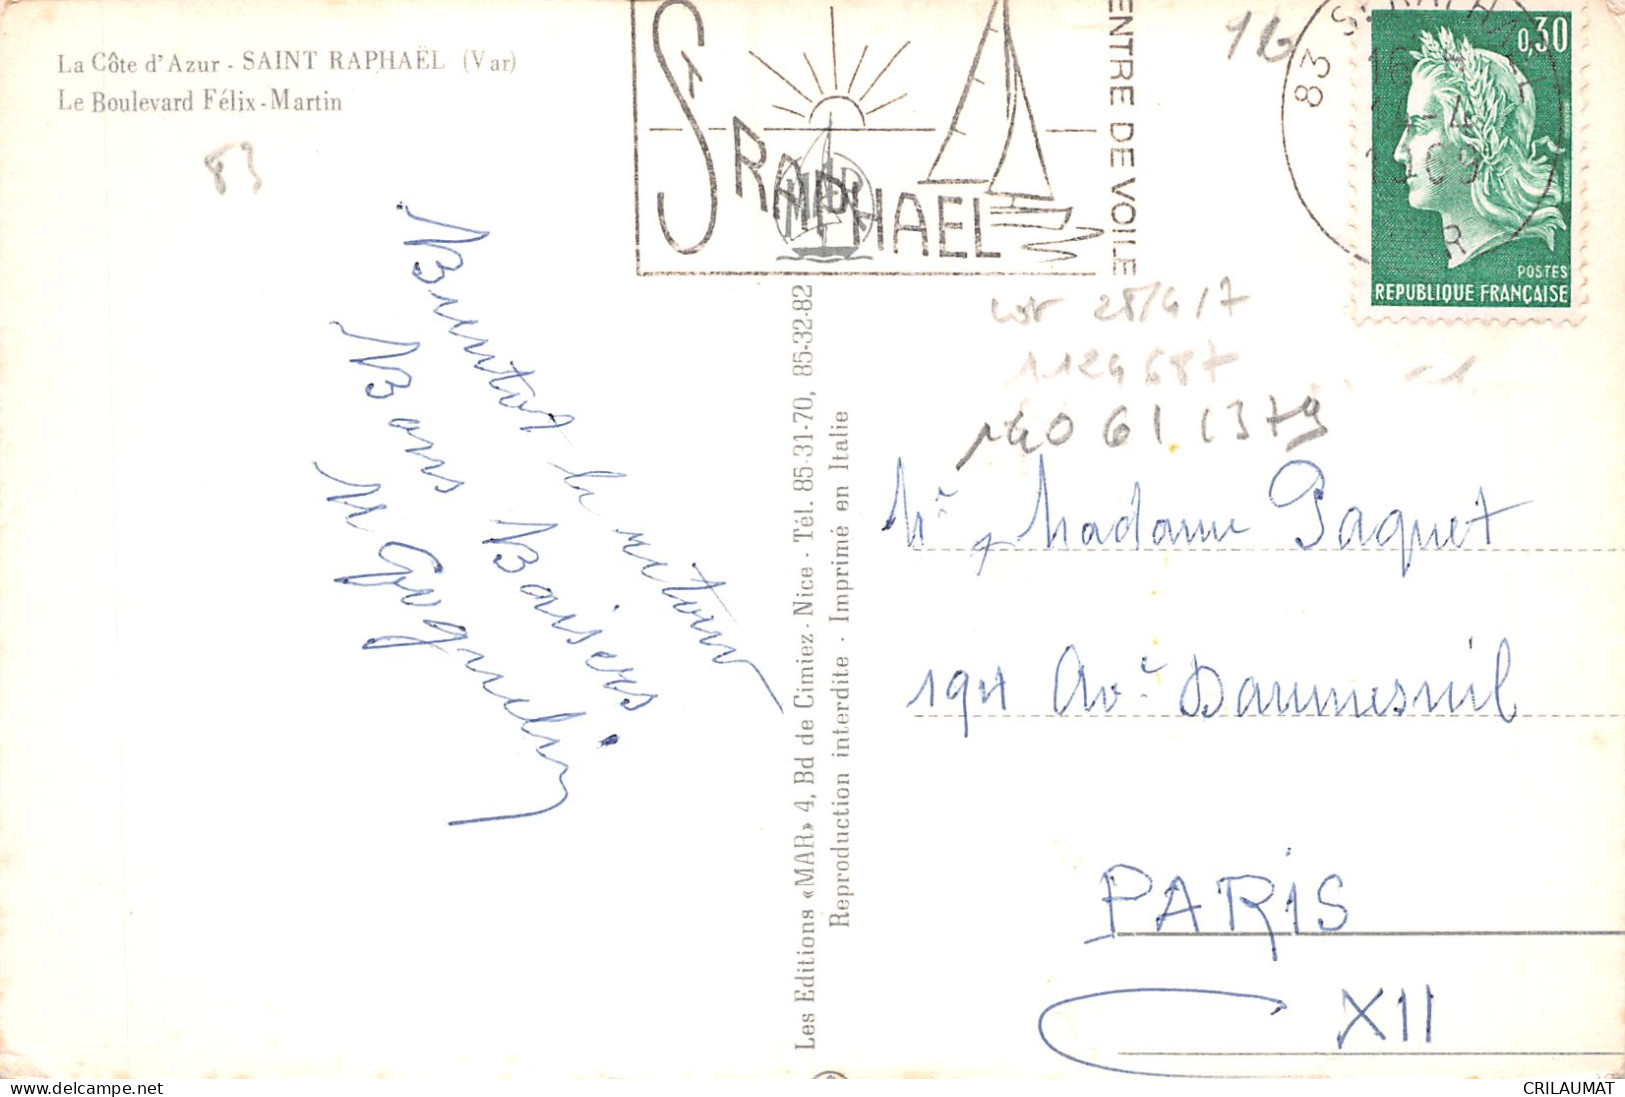 La Côte d'Azur - SAINT RAPHAËL (Var)
Le Boulevard Félix-Martin
83
Bientot le retour
Bons Baisers
ST RAPHAEL
MAR
ENTRE DE VOILE
Les Editions «MAR» 4, Bd de Cimiez - Nice - Tél. 85-31-70, 85-32-82
Reproduction interdite - Imprimé en Italie
83 ST RAPHAEL
16 H
14-4
1969
VAR
0,30
POSTES
REPUBLIQUE FRANÇAISE
28/4/7
1124687
140 61 1379
Mr & Madame Paquet
194 Av. Daumesnil
PARIS
XII
delcampe.net
CRILAUMAT